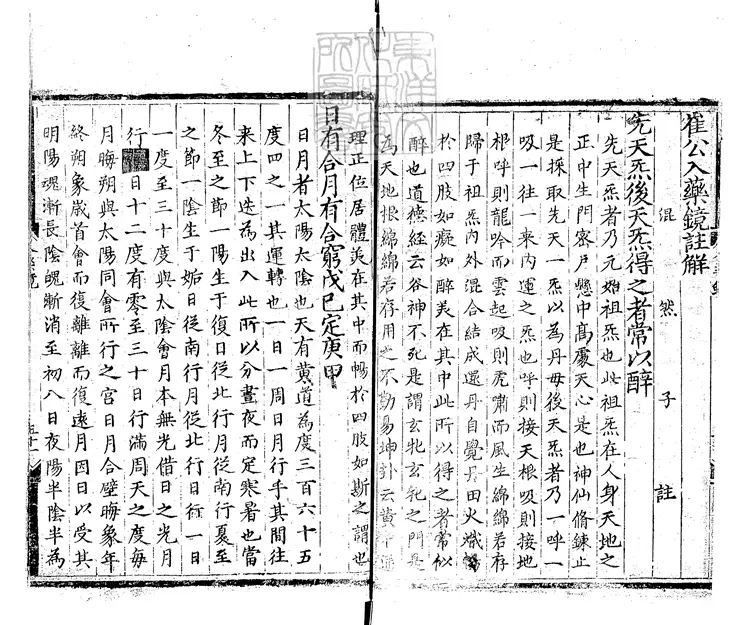 崔公入藥鏡註解
混然子註
先天炁後天炁得之者常以醉
先天炁者乃元始祖炁也此祖炁在人身天地之
正中生門密戶懸中高處天心是也神仙脩鍊止
是採取先天一炁以為丹母後天炁者乃一呼一
吸一往一來內運之炁也呼則接天根吸則接地
根呼則龍吟而雲起吸則虎嘯而風生綿綿若存
歸于祖炁內外混合結成還丹自覺丹田火熾暢
於四肢如癡如醉美在其中此所以得之者常似
醉也道德經云谷神不死是謂玄牝玄牝之門是
為天地根綿綿若存用之不勤易坤卦云黃中通
理正位居體美在其中而暢於四肢如斯之謂也
日有合月有合窮戊己定庚甲
日月者太陽太陰也天有黃道為度三百六十五
度四之一其運轉也一日一周日月行乎其間往
來上下迭為出入此所以分晝夜而定寒暑也當
冬至之節一陽生于復日從北行月從南行夏至
之節一陰生于姤日從南行月從北行日行一日
一度至三十度與太陰會月本無光借日之光月
行日十二度有零至三十日行滿周天之度每
月晦朔與太陽同會所行之宮日月合璧晦象年
終朔象歲首會而復離離而復遠月因日以受其
明陽魂漸長陰魄漸消至初八日夜陽半陰半為